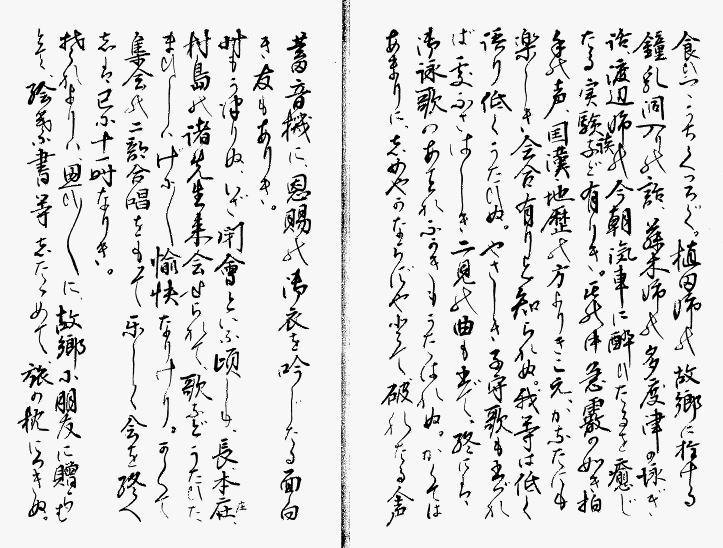 食ひつゝうちくつろぐ。植田師の故郷に於ける
鐘乳洞入りの話、藤木師の多度津の詠ぎ
話、渡辺師の今朝汽車に酔ひたるを癒じ
たる実験談など有りき。其の体 急霰の如き拍
手の声、国漢地歴の方よりきこえ、かなたにも
楽しき会合有りと知られぬ。我等は低く
語り低くうたひぬ。やさしき子守歌も出づれ
ば ふさはしき二見の曲も出で、終には、
御詠歌のあはれふかきもうたはれぬ。かくては
あまりに、しめやかならずやとて 破れたる声
蓄音機に、恩賜の御衣を吟じたる面白
き友もありき。
時もうつりぬ、いざ閉會といふ頃しも、長本庄、
村島の諸先生来会せられて、歌などうたひた
まひしかばげにげに愉快なりけり。かくて
集会は二部合唱をもて楽しく会を終へ
しは已に十一時なりき。
わかれてよりは思ひ思ひに、故郷に朋友に贈らむ
とて 絵葉書等 したためて、旅の枕につきぬ。